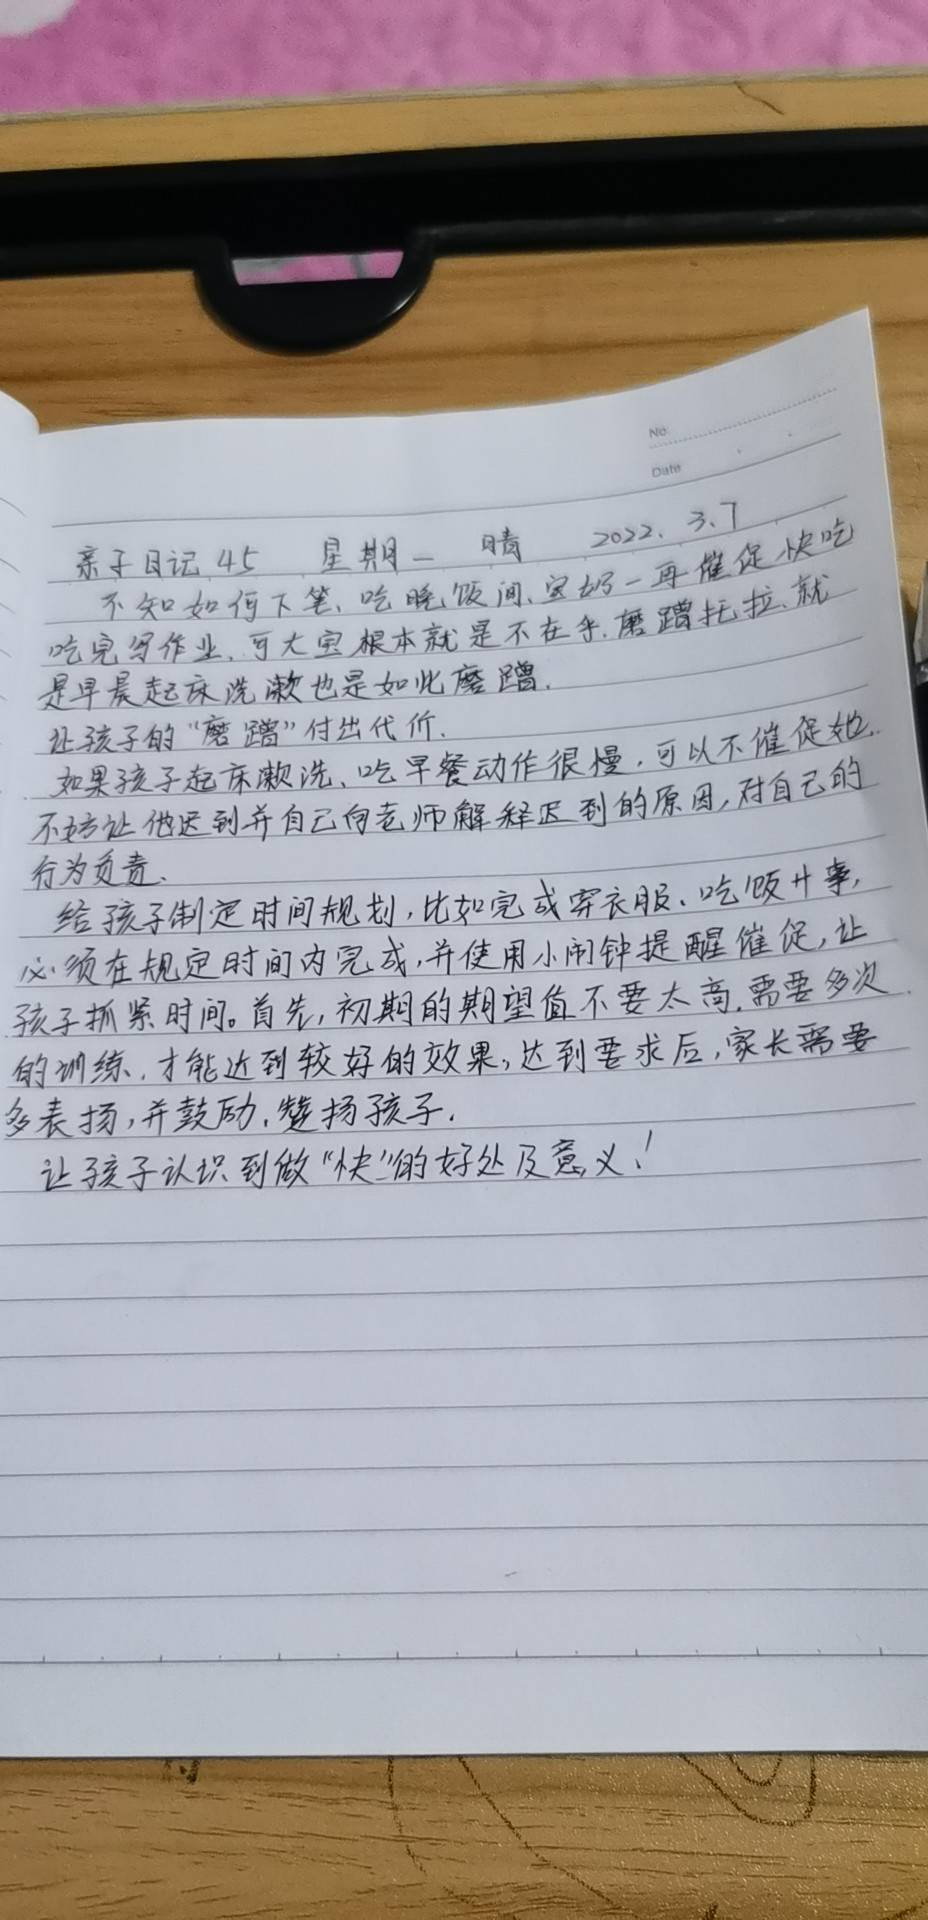 No.
Date
亲子日记45 星期一 晴 2022.3.7
不知如何下笔、吃晚饭间、宝妈一再催促快吃
吃完写作业、可大宝根本就是不在乎.磨蹭托拉、就
是早晨起床洗漱也是如此磨蹭.
让孩子的“磨蹭”付出代价.
如果孩子起床漱洗、吃早餐动作很慢,可以不催促她.
不妨让他迟到并自己向老师解释迟到的原因,对自己的
行为负责.
给孩子制定时间规划,比如完成穿衣服、吃饭 事,
必须在规定时间内完成,并使用小闹钟提醒催促,让
孩子抓紧时间。首先,初期的期望值不要太高,需要多次
的训练,才能达到较好的效果;达到要求后,家长需要
多表扬,并鼓励,赞扬孩子.
让孩子认识到做“快”的好处及意义!